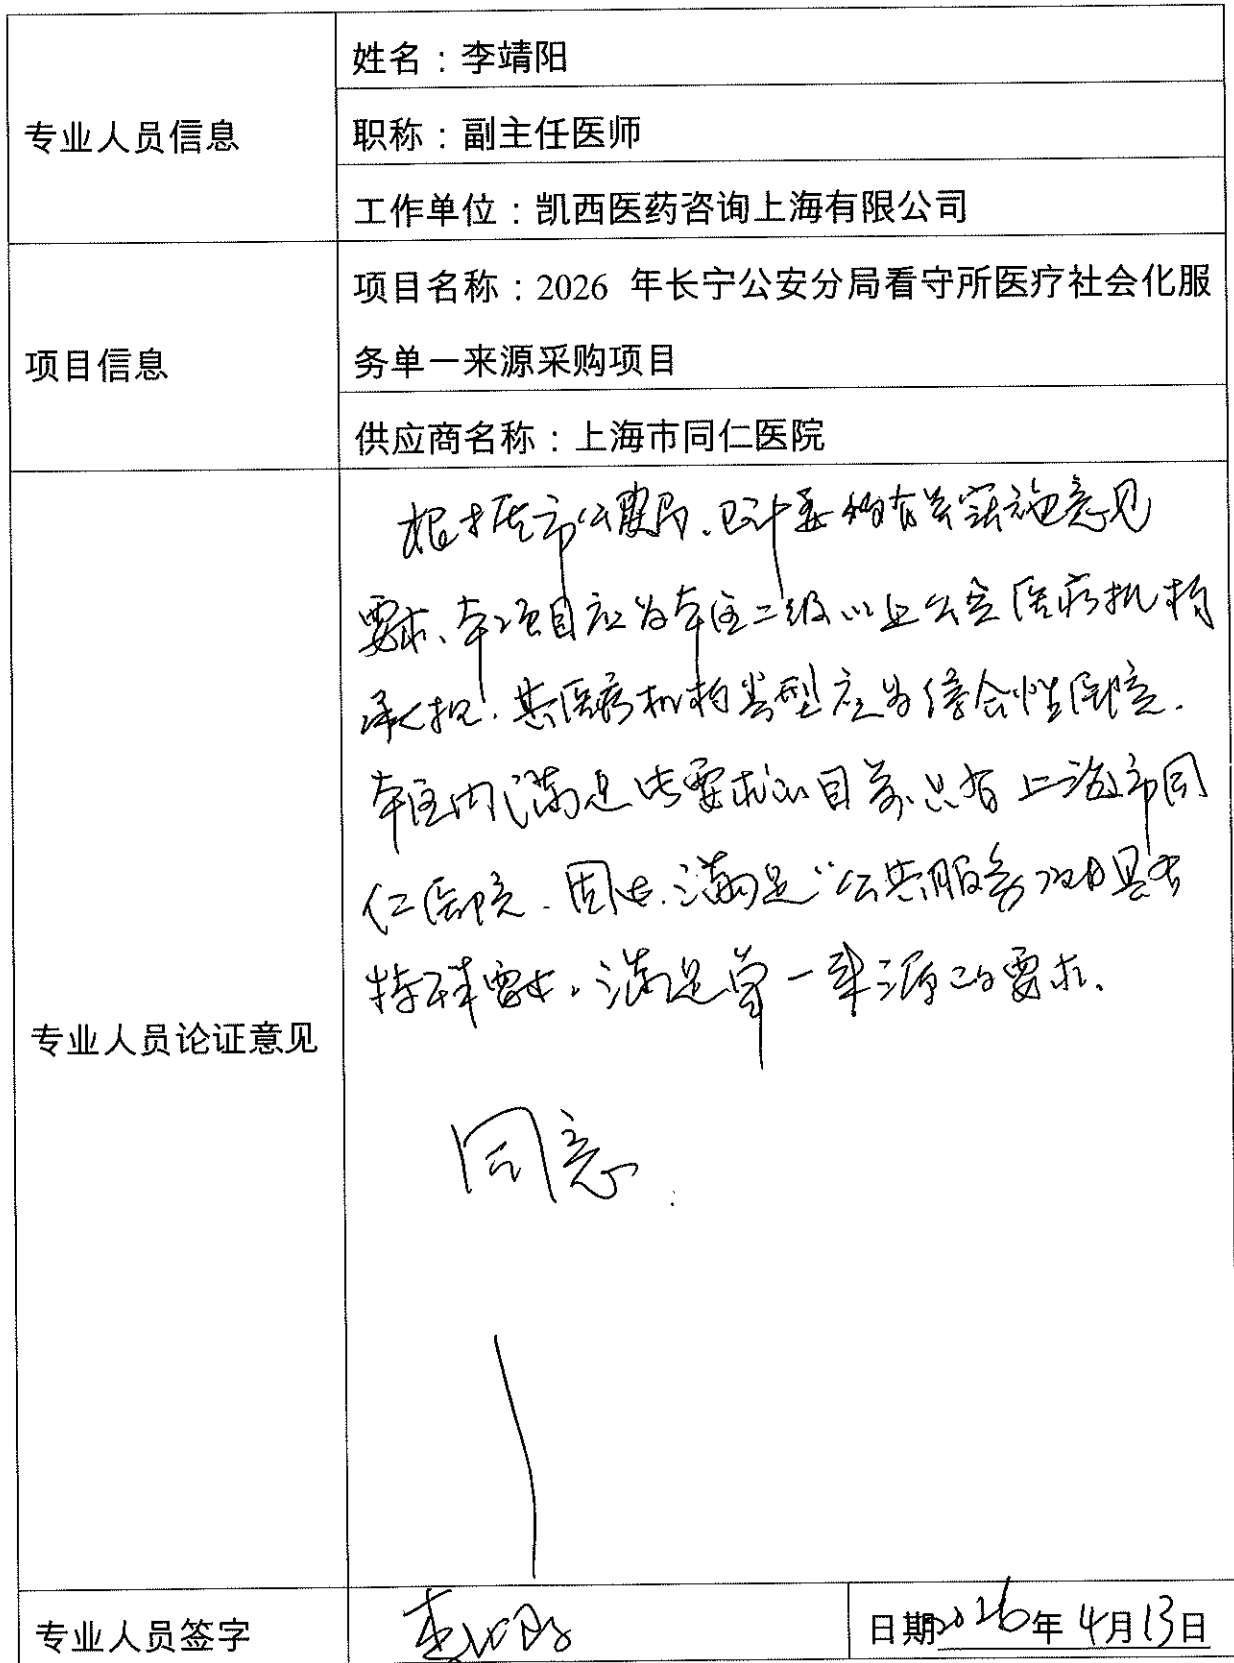 专业人员信息
姓名：李靖阳
职称：副主任医师
工作单位：凯西医药咨询上海有限公司
项目信息
项目名称：2026 年长宁公安分局看守所医疗社会化服
务单一来源采购项目
供应商名称：上海市同仁医院
专业人员论证意见
根据市公安局、卫计委的有关实施意见
要求、本项目应为本区二级以上公立医疗机构
承担．其医疗机构类型应为综合性医院．
本区内满足此要求的目前只有上海市同
仁医院．因此．满足“公共服务项目具有
特殊要求．满足单一来源的要求．
同意．
专业人员签字
日期2026年4月13日